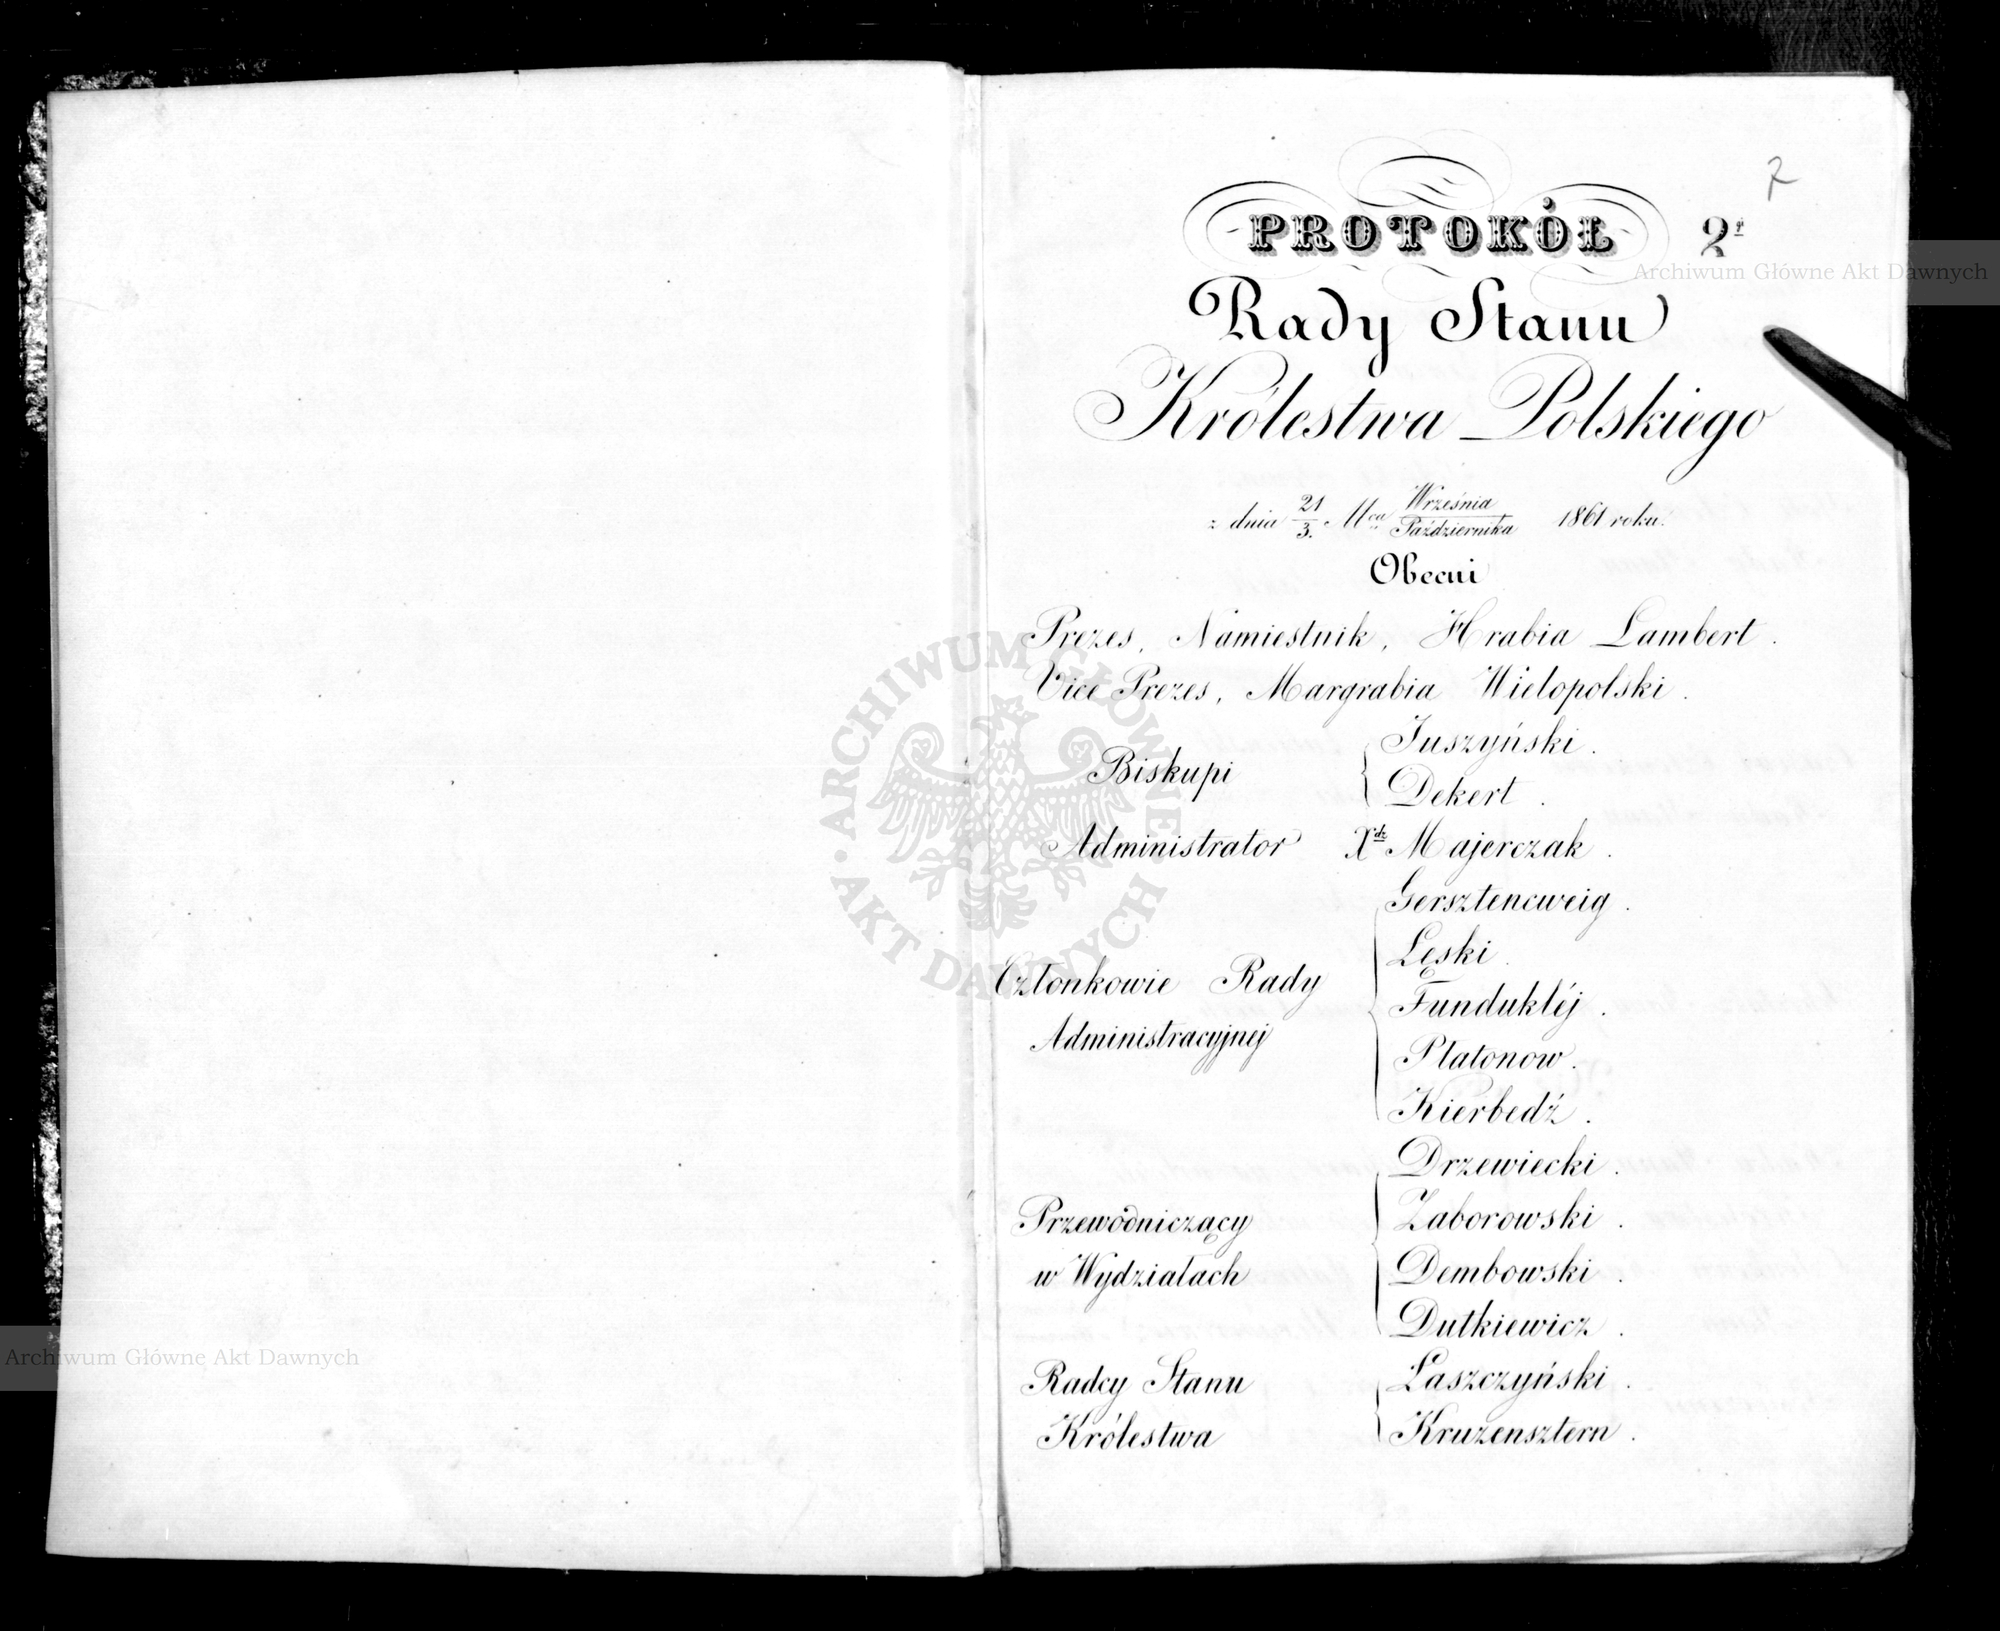 7
PROTOKÓŁ 2i
Rady Stanu
Królestwa Polskiego
z dnia 21/3. Mca Września/Października 1861 roku.
Obecni
Prezes, Namiestnik, Hrabia Lambert.
Vice Prezes, Margrabia Wielopolski.
Biskupi
Juszyński.
Dekert.
Administrator Xdz Majerczak.
Członkowie Rady
Administracyjnej
Gersztencweig.
Łęski.
Funduklej.
Płatonow.
Kierbedź.
Przewodniczący
w Wydziałach
Drzewiecki.
Zaborowski.
Dembowski.
Dutkiewicz.
Radcy Stanu
Królestwa
Łaszczyński.
Kruzensztern.
Archiwum Główne Akt Dawnych
ARCHIWUM GŁÓWNE AKT DAWNYCH
Archiwum Główne Akt Dawnych